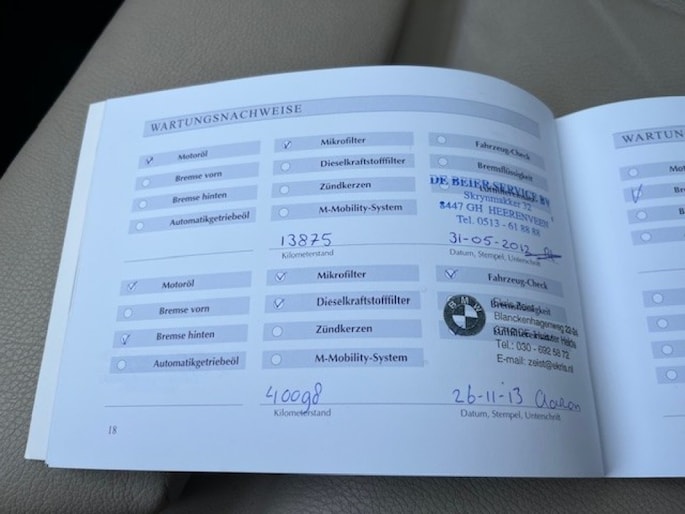 WARTUNGSNACHWEISE
Motoröl
Mikrofilter
Fahrzeug-Check
Bremse vorn
Dieselkraftstofffilter
Bremsflüssigkeit
Bremse hinten
Zündkerzen
Automatikgetriebeöl
M-Mobility-System
DE BEIER SERVICE
Skrynmakker 72
8447 GH HEERENVEEN
Tel. 0513 - 61 88 88
13875
31-05-2012
Kilometerstand
Datum, Stempel, Unterschrift
Motoröl
Mikrofilter
Fahrzeug-Check
Bremse vorn
Dieselkraftstofffilter
Bremsflüssigkeit
Bremse hinten
Zündkerzen
Automatikgetriebeöl
M-Mobility-System
BMW
Blanckenhagenweg
Tel.: 030 - 692 58 72
E-mail: zeist@ekris.nl
40098
26-11-13 Aaron
Kilometerstand
Datum, Stempel, Unterschrift
18
WARTUN
Mot
Br
B